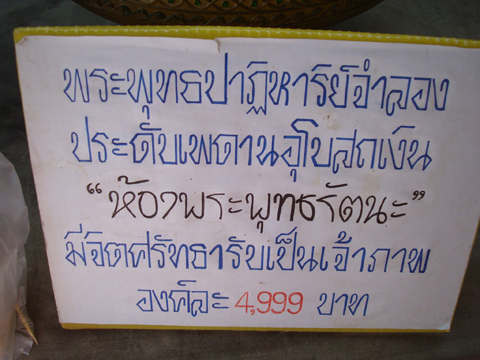 พระพุทธปาฏิหาริย์จำลอง
ประดับเพดานอุโบสถเงิน
“ห้องพระพุทธรัตนะ”
มีจิตศรัทธารับเป็นเจ้าภาพ
องค์ละ 4,999 บาท